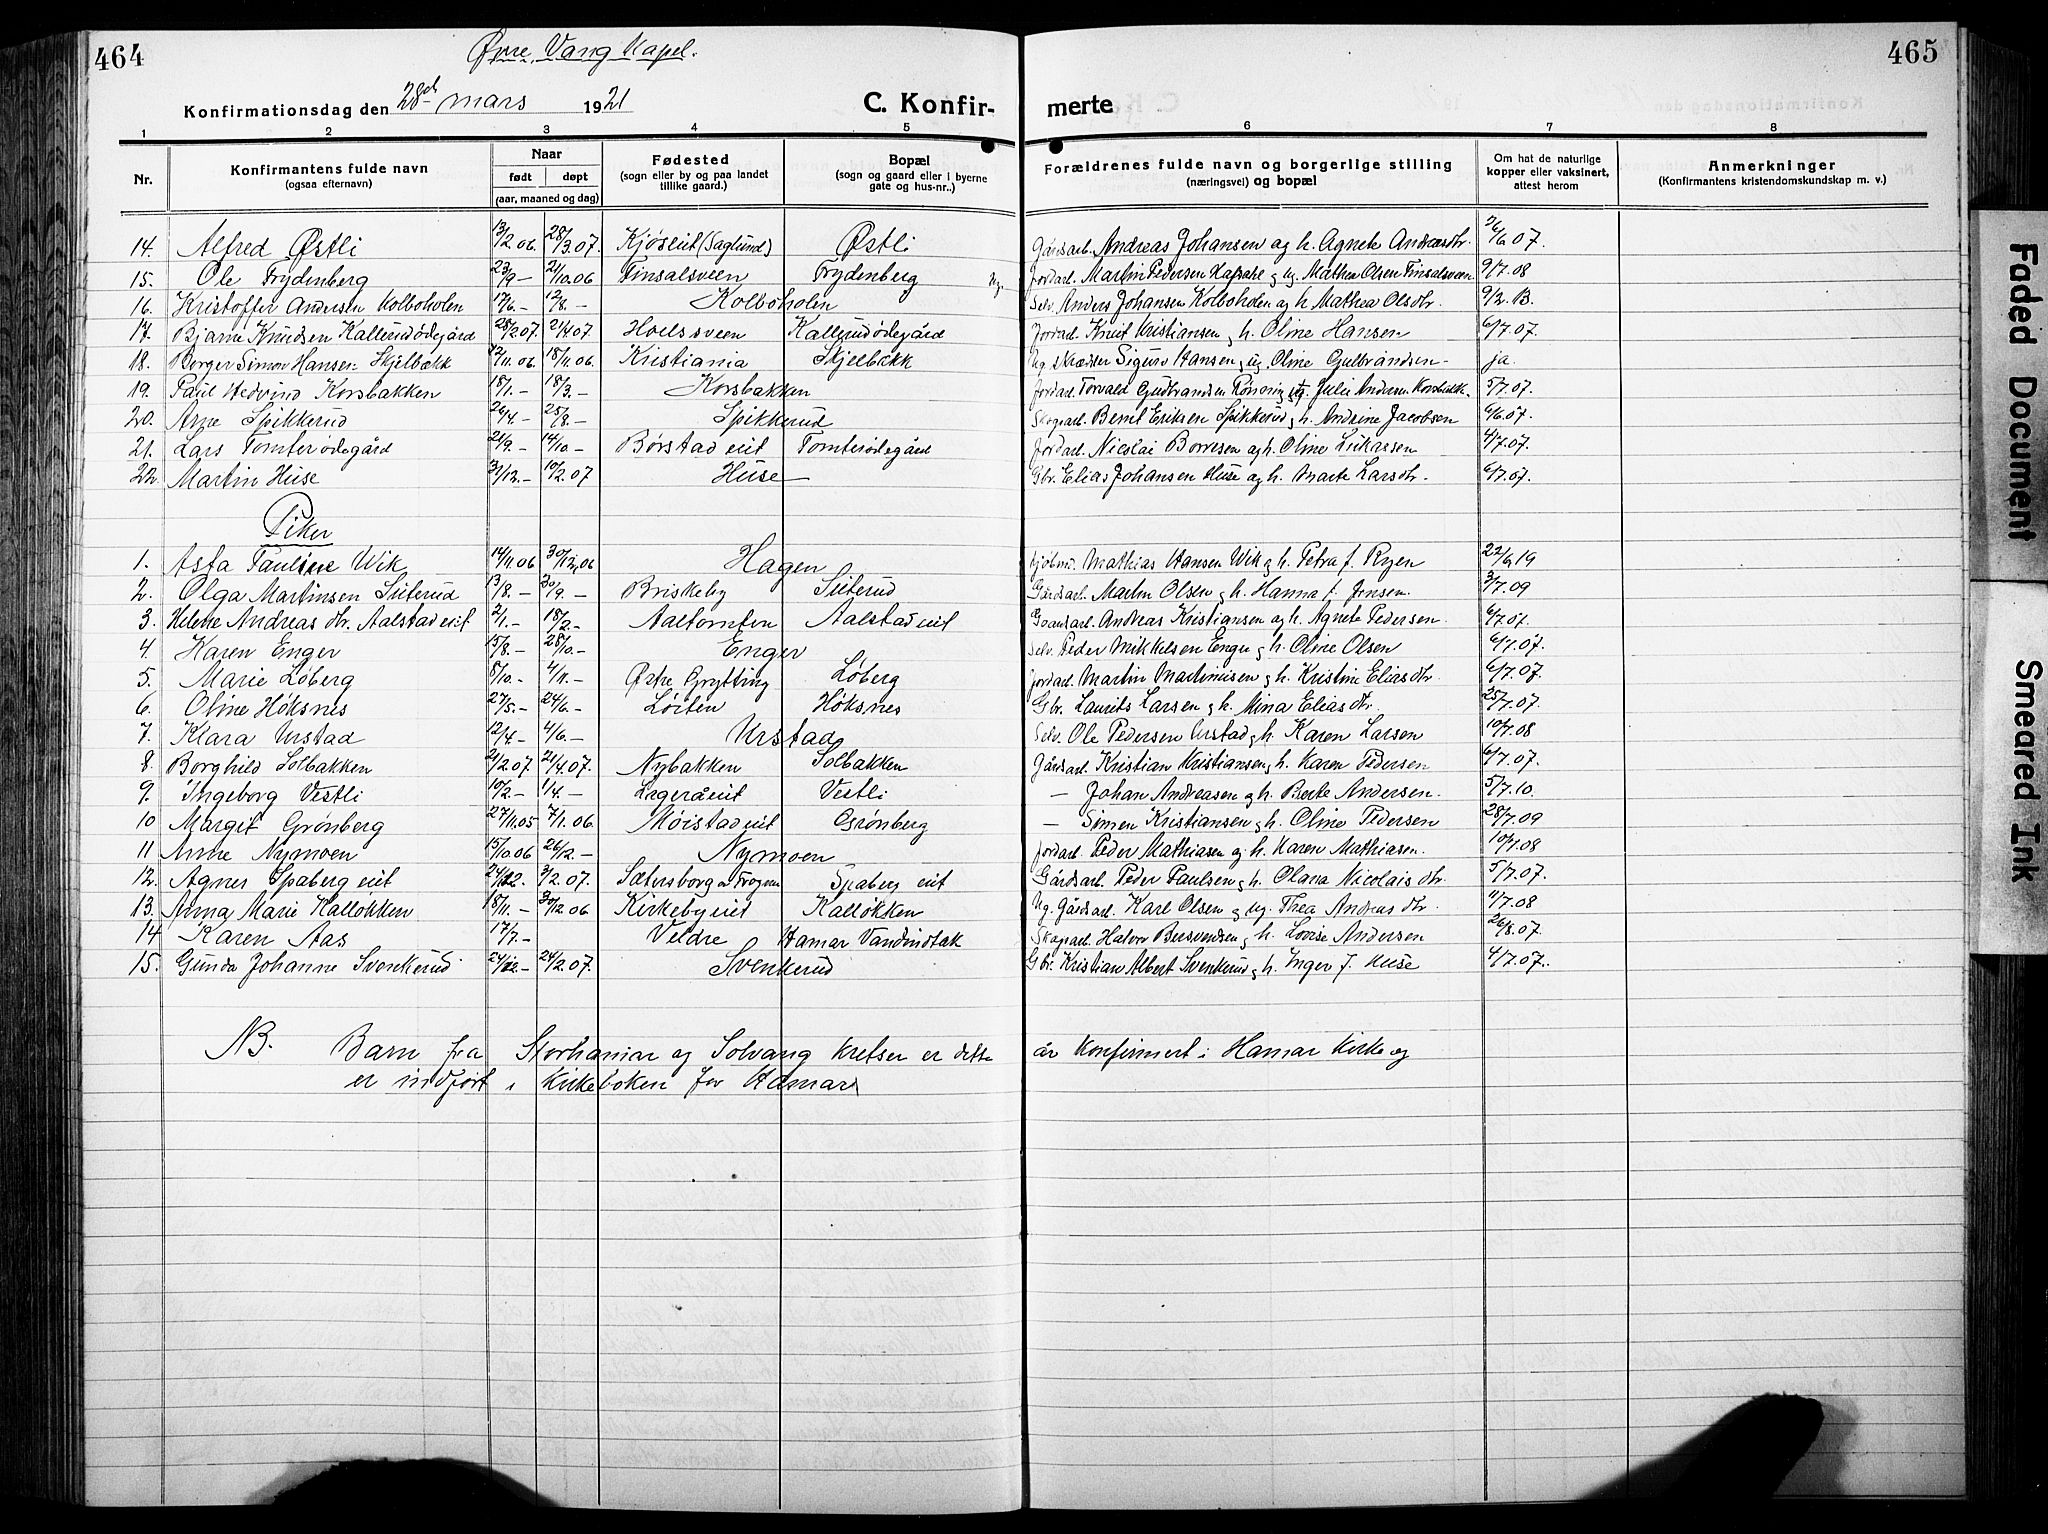 464
465
Øvre Vang Kapel.
Konfirmationsdag den 28de mars 1921
C. Konfirmerte
1 2 3 4 5 6 7 8
Nr.
Konfirmantens fulde navn
(ogsaa efternavn)
Naar
født døpt
(aar, maaned og dag)
Fødested
(sogn eller by og paa landet
tillike gaard.)
Bopæl
(sogn og gaard eller i byerne
gate og hus-nr..)
Forældrenes fulde navn og borgerlige stilling
(næringsvei) og bopæl
Om hat de naturlige
kopper eller vaksinert,
attest herom
Anmerkninger
(Konfirmantens kristendomskundskap m. v.)
14. Alfred Østli 13/2 06. 28/3 07. Kjøseit (Saglund) Østli Gårdsarb. Andreas Johansen og h. Agnete Andreasdtr. 07.
15. Ole Frydenberg 23/9 — 21/10 06 Finsalsveen Frydenberg Ug. Jordarb. Martin Pedersen og ug. Mathea Olsen Finsalsveen 9/7.08
16. Kristoffer Andersen Kolboholen 17/6.— 12/8.— Kolboholen Selv. Anders Johansen Kolboholen og h. Mathea Olsdtr.
17. Bjarne Knudsen Kallerudødegård 28/2 07. 21/4 07. Hoelsveen Kallerudødegård Jordarb. Knut Kristiansen og h. Oline Hansen 6/7.07.
18. Borger Simon Hansen Skjelbækk 12/11.06. 18/11.06. Kristiania Skjelbækk Ug. skrædder Sigurd Hansen og ug. Oline Gulbrandsen — ja.
19. Paul Hedvind Korsbakken 18/1.— 18/3.— Korsbakken Jordarb. Torvald Gudbrandsen Rønning og ug. Julie Andersen 5/7.07.
20. Arne Spikkerud 26/4.— 25/8.— Spikkerud Skogsarb. Bernt Eriksen Spikkerud og h. Andrine Jacobsen 6/6.07.
21. Lars Tomterødegård 21/9.— 14/10.— Børstadeit Tomterødegård Jordarb. Nicolai Borresen og h. Oline Lukassen 4/7.07.
22. Martin Huse 31/12.— 10/2.07 Huse Gbr. Elias Johansen Huse og h. Marte Larsdtr. 6/7.07.
Piker
1. Asta Pauline Wik 14/11.06 30/12.06 Hagen Kjøbmd. Mathias Hansen Wik og h. Petra f. Ryen 22/6 19
2. Olga Martinsen Sliterud 13/8.— 30/9.— Briskeby Sliterud Gårdsarb. Martin Olsen og h. Hanna f. Jensen. 3/7.09
3. Helene Andreasdtr. Aalstadeit 2/1.— 18/2.— Aaltomten Aalstadeit Gaardsarb. Andreas Kristiansen og h. Agnete Pedersen. 6/7.07.
4. Karen Enger 15/8.— 28/10.— Enger Selv. Peder Mikkelsen Enger og h. Oline Olsen 6/7.07.
5. Marie Løberg 8/10.— 4/11.— Østre Grytting Løberg Jordarb. Martin Martinisen og h. Kristine Eliasdtr. 6/7.07.
6. Oline Høksnes 27/5.— 24/6.— Løiten Høksnes Gbr. Laurits Larsen og h. Mina Eliasdtr. 25/7.07.
7. Klara Urstad 12/4.— 4/6.— Urstad Selv. Ole Pedersen Urstad og h. Karen Larsen 10/7.08
8. Borghild Solbakken 2/2 07. 21/4.07. Nybakken Solbakken Gårdsarb. Kristian Kristiansen og h. Karen Pedersen 6/7.07.
9. Ingeborg Vestli 10/2.— 1/4.— Lageråeit Vestli — Johan Andreasen og h. Berte Andersen. 5/7.10.
10 Margit Grønberg 27/11.05 7/1.06. Møistadeit Grønberg — Simen Kristiansen og h. Oline Pedersen 28/7.09
11 Anne Nymoen 15/10.06 26/12.— Nymoen Jordarb. Peder Mathiasen og h. Karen Mathiasen. 10/7.08
12. Agnes Spabergeit 24/12. 3/2.07. Sætersborg Spabergeit Gårdsarb. Peder Paulsen og h. Olava Nicolaisdtr. 5/7.07.
13. Anna Marie Kalløkken 18/11.— 30/12 06 Kirkebyeiet Kalløkken Ug. Gårdsarb. Karl Olsen og ug. Thea Andreasdtr. 11/7.08
14 Karen Aas 17/7.— Veldre Hamar Vandindtak Skogsarb. Halvor Bersvendsen og h. Lovise Andersen 26/8.07.
15. Gunda Johanne Svenkerud 24/12.— 24/2.07. Svenkerud Gbr. Kristian Albert Svenkerud og h. Inger J. Huse 4/7.07.
NB. Barn fra Storhamar og Solvang kretser er dette år konfirmert i Hamar Kirke og
er indført i Kirkeboken for Hamar
Faded Document
Smeared Ink